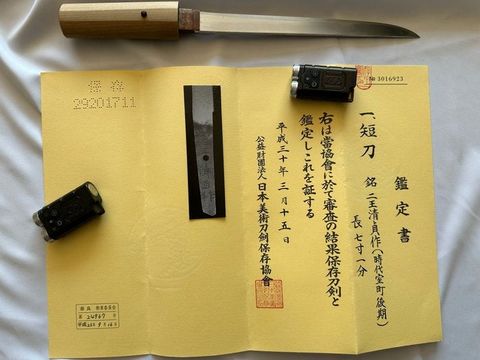 № 3016923
鑑定書
一、短刀 銘 二王清貞作(時代室町後期)
長 七寸一分
右は當協會に於て審査の結果保存刀剣と
鑑定しこれを証する
平成三十年三月十五日
公益財團法人日本美術刀剣保存協會
保存
29201711
教育委員会
第 24967 号